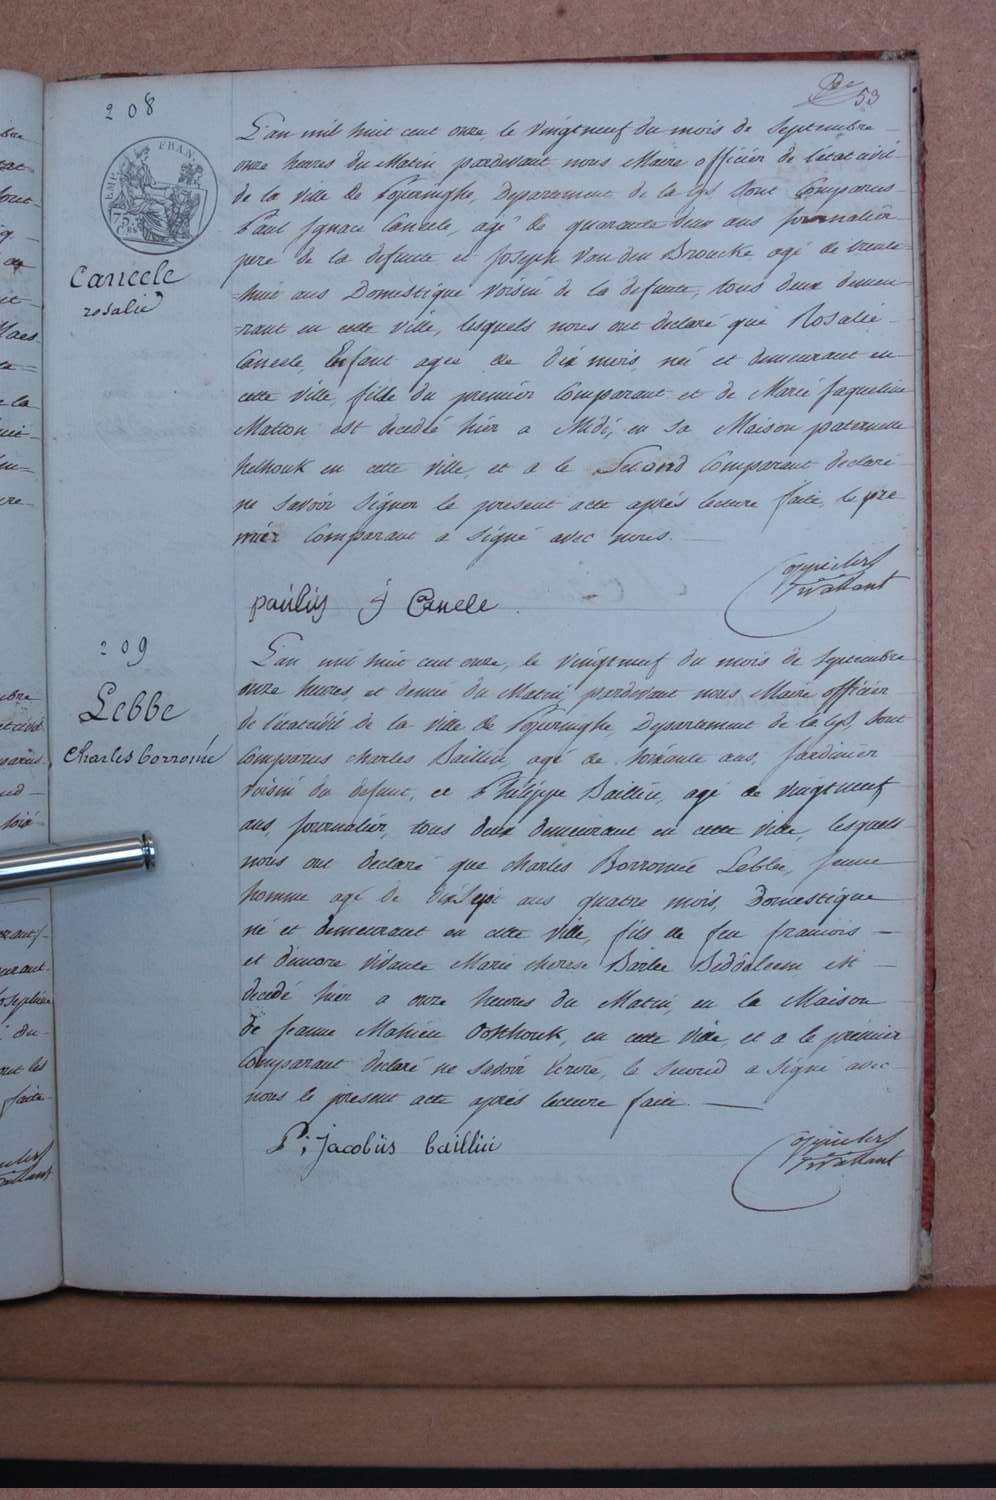 53
208
EMP. FRAN.
75 Ces
Cancele
rosalie
L'an mil huit cent onze, le vingtneuf du mois de Septembre
onze heures du Matin pardevant nous Maire officier de l'état civil
de la ville de Poperinghe, Departement de la Lys sont Comparus
Paul Ignace Cancele, agé de quarante deux ans Journalier
pere de la defunte et Joseph Van den Broucke agé de trente
=huit ans Domestique voisin de la defunte, tous deux demeu
=rant en cette ville, lesquels nous ont declaré que Rosalie
Cancele, Enfant agée de dix mois, née et demeurant en
cette ville, fille du premier Comparant et de Marie Jaqueline
Matton est decedée hier a Midi, en sa Maison paternelle
helhouk en cette ville, et a le Second Comparant declaré
ne savoir signer le present acte après lecture faite, le pre
mier Comparant a signé avec nous.
paulus J Cancele
209
Lebbe
Charles borromée
L'an mil huit cent onze, le vingtneuf du mois de Septembre
onze heures et demie du Matin pardevant nous Maire officier
de l'étatcivil de la ville de Poperinghe, Departement de la Lys, sont
Comparus charles Baillieu, agé de soixante ans, Jardinier
voisin du defunt, et Philippe Baillieu, agé de vingtneuf
ans, Journalier, tous deux demeurant en cette ville, lesquels
nous ont declaré que charles Borromée Lebbe, jeune
homme agé de dix Sept ans quatre mois, Domestique
né et demeurant en cette ville, fils de feu francois
et d'encore vivante Marie therese Barbe est
decedé hier a onze heures du Matin, en la Maison
de Jeanne Mahieu Oosthouk, en cette ville, et a le prémier
Comparant declaré ne savoir Ecrire, le second a signé avec
nous le present acte après lecture faite.
P: jacobus bailliu